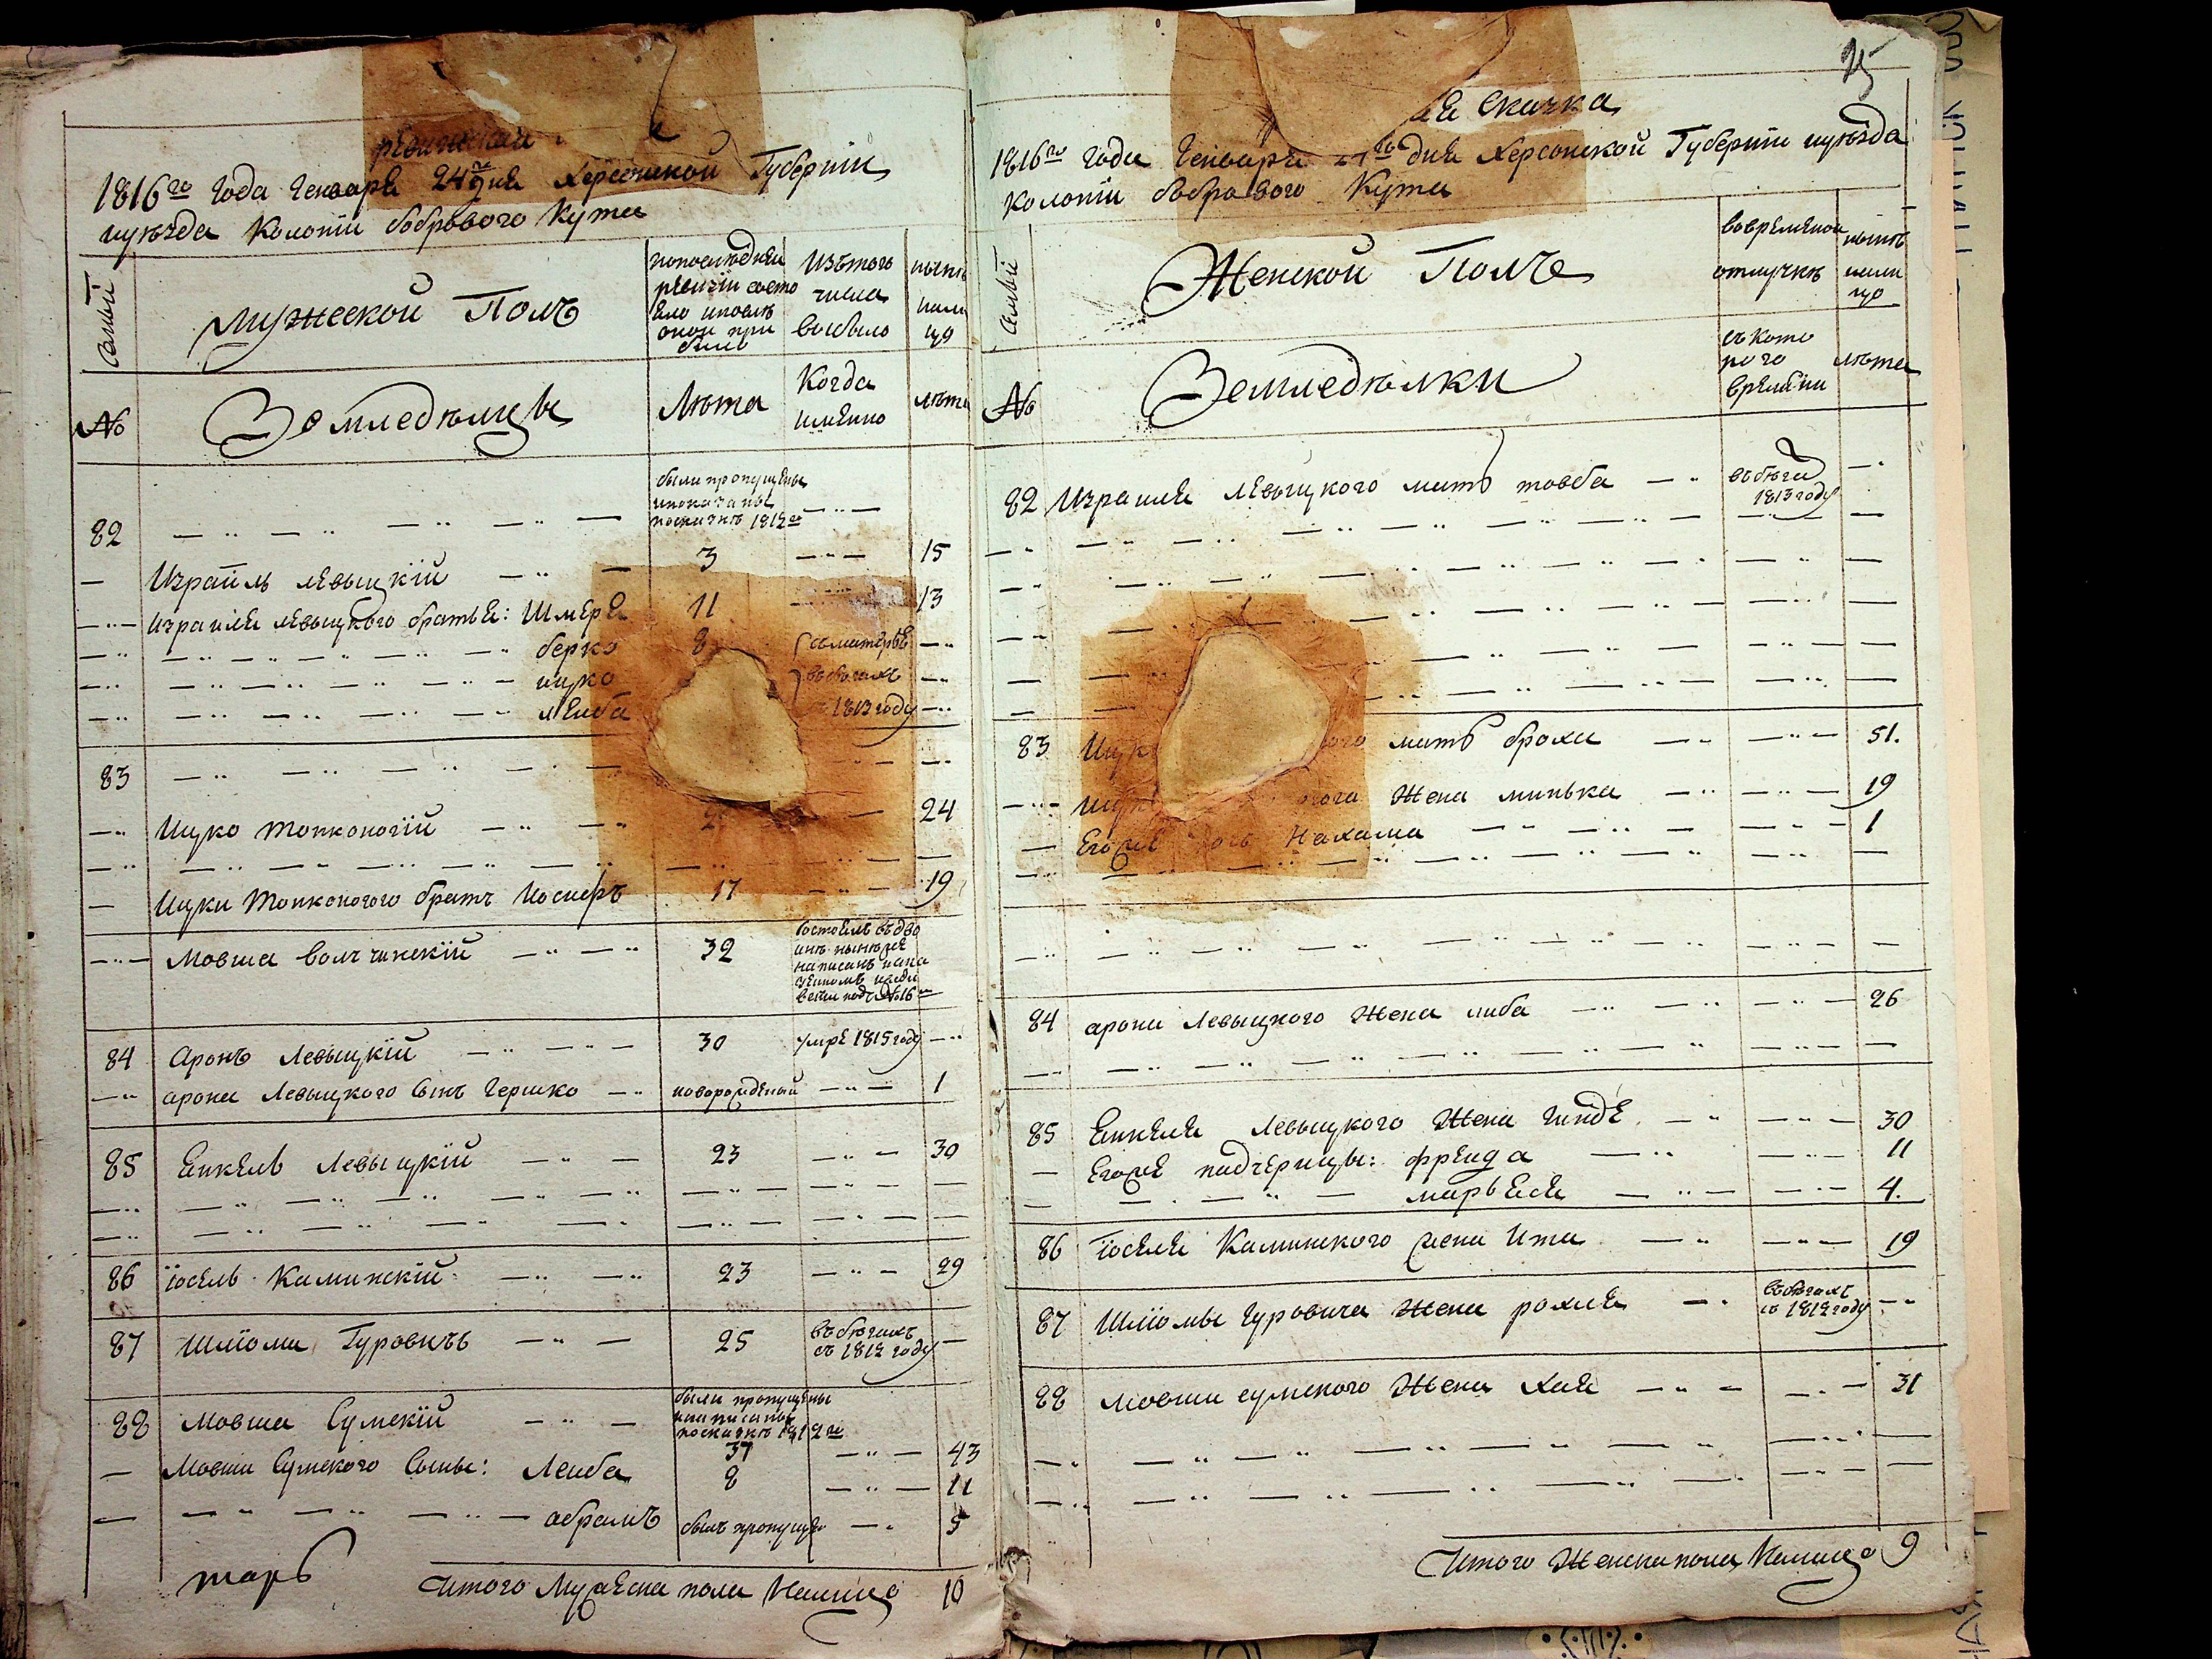 ревижская
1816го года Генваря 24го дня Херсонской Губернiи
иуезда Колонiи бобрового Кута
Семьи
Мужеской Полъ
попоследней ревизiи состояло ипосле оной прибыло
Изътого числа выбыло
ныне налицо
№
Земледельцы
Лета
Когда имянно
лета
82
были пропущены ипоказаны поскаске 1812го
Израйль левыцкiй 3 15
Израиля левыцкого братья: Шмеря 11 13
берко 8 сматерью
ицко вбегахъ
леиба 1813 году
83
Ицко Тонконогiй 24
Ицки Тонконогого братъ Иосифъ 17 19
Мовша волчинскiй 32
84 Аронъ Левыцкiй 30 умре 1815 году
арона Левыцкого Сынъ Гершко новорожденый 1
85 Янкель Левыцкiй 23 30
86 iосель Каминскiй 23 29
87 Шлiома Гуровичъ 25 въбегахъ съ 1812 году
88 Мовша Сумскiй
были пропущены инаписаны поскаске 1812го
37 43
Мовши Сумского Сыны: Леиба 8 11
абрамъ былъ пропущен 5
тарь
Итого Мужеска пола Налицо 10
25
ая Скаска
1816го года Генваря дня Херсонской Губернiи иуезда
Колонiи бобрового Кута
Семьи
Женской Полъ
вовременой отлучке
ныне налицо
№
Земледелки
съкоторого времяни
лета
82 Израиля левыцкого мать товба въбегахъ 1813 году
83 Ицк ого мать броха 51.
Ицк ного Жена минька 19
Егоже дочь Нахама 1
84 арона Левыцкого Жена либа 26
85 Янкеля Левыцкого Жена Гинде 30
Егоже падчерицы: фрейда 11
марьяся 4.
86 iоселя Каминского жена Ита 19
87 Шлiомы Гуровича Жена рохля въбегахъ съ 1812 году
88 Мовши сумского Жена Хая 31
Итого Женска пола Налицо 9